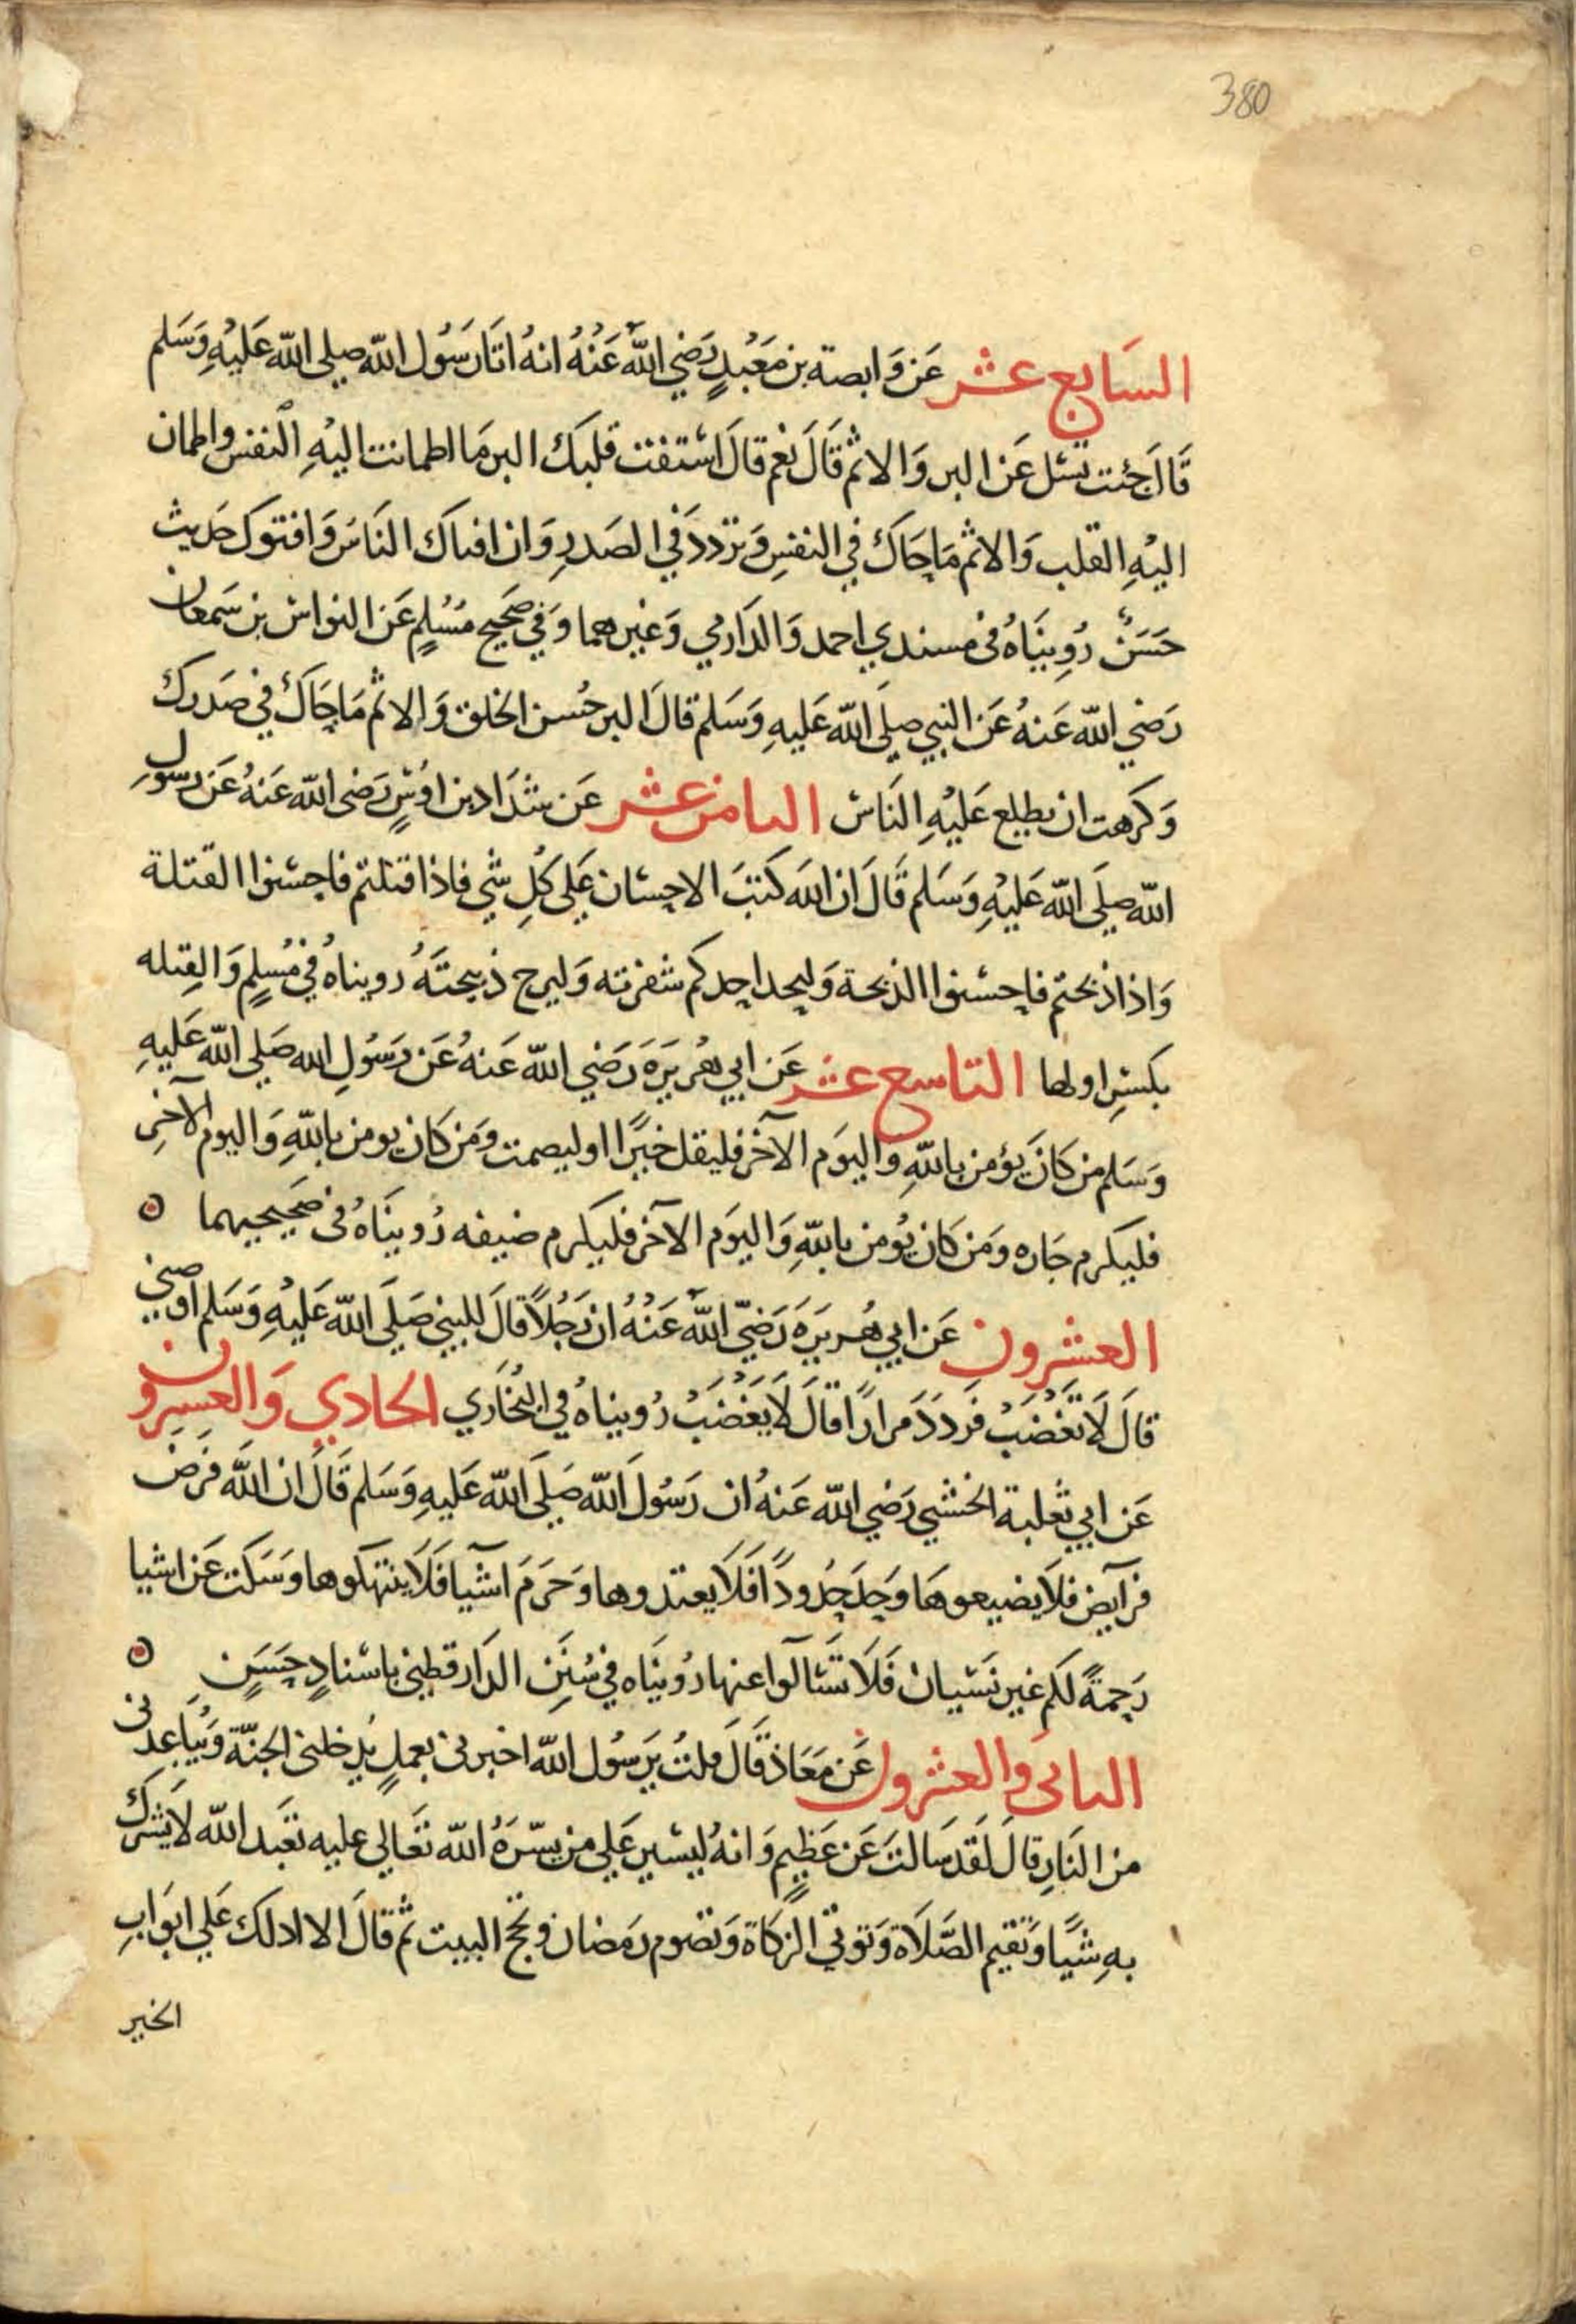 380
السَابع عشر عَن وَابصة بن مَعْبُدٍ رَضي اللّٰه عَنْهُ انهُ اتَا رَسُول اللّٰه صلى اللّٰه عَليْهِ وَسَلم
قَالَ جئت تسئل عَن البر وَالاثم قَالَ نعْم قالَ اسْتفت قلبَك البر مَا اطمانت اليْهِ النفس واطمان
اليْهِ القلب وَالاثم مَا حَاكَ في النفسِ وَترددَ في الصَدرِ وَان افتاك النَاسُ وَافتوك حَديث
حَسَنٌ رُوِينَاهُ في مسندي احمد وَالدَارمي وَغيرهما وَفي صَحيح مُسْلمٍ عَن النواس بن سَمعان
رَضي اللّٰه عَنهُ عَن النبي صلى اللّٰه عَليهِ وَسَلم قالَ البر حُسن الخلق وَالاثم مَا حَاكَ في صَدرك
وَكرهت ان يطلع عَليْهِ النَاس الثامن عشر عَن شدَاد بن اوْسٍ رَضي اللّٰه عَنهُ عَن رسولِ
اللّٰه صَلى اللّٰه عَليْهِ وَسَلم قَالَ ان اللّٰه كَتبَ الاحسَان عَلى كُلِ شي فاذا قتلتم فاحسنوا القتلة
وَاذا ذبحتم فاحسنوا الذبحة وَليحد احدكم شفرته وَليرح ذبيحتَهُ رويناهُ في مُسلمٍ وَالقِتله
بكسْرِ اولها التاسع عشر عَن ابي هُريرَة رَضي اللّٰه عَنهُ عَن رَسُولِ اللّٰه صَلى اللّٰه عَليهِ
وَسَلم من كانَ يؤمن باللّٰهِ وَاليوَم الآخر فليقل خيرًا اوليصمت ومَن كان يومن باللّٰهِ وَاليوم الآخرِ
فليكرم جَاره ومَن كان يُومن باللّٰهِ وَاليوَم الآخر فليكرم ضيفه رُوينَاهُ في صَحيحيهما
العشرون عَن ابي هُريرَة رَضيّ اللّٰه عَنْهُ ان رَجُلاً قالَ للنبي صَلى اللّٰه عَليْهِ وَسَلم اوصني
قالَ لَا تَغْضَبْ فرَددَ مرارًا قالَ لَا يَغْضَبْ رُويناهُ في البُخَاري الحَادي وَالعسِرون
عَن ابي ثعلبة الخشني رَضي اللّٰه عَنهُ ان رَسُولَ اللّٰه صَلى اللّٰه عَليهِ وَسَلم قَالَ ان اللّٰه فرَض
فرآيض فلاَ يضيعوهَا وَحَدَ حُدُودًا فَلاَ يعتدوها وَحَرَمَ اشْيآ فَلَا ينتهكوها وَسَكت عَن اشيا
رَحِمةً لكم غير نسْيان فَلَا تسْئالوا عنها رُوينَاه في سُنَنِ الدَارقطني باسْنادٍ حَسَنٍ
الثاني والعشرون عَن مَعَاذ قَالَ قلتُ يَرسُول اللّٰه اخبرني بعملٍ يُدخلني الجنّة وَيُبَاعدني
من النَارِ قالَ لَقد سَالتَ عَن عَظِيمٍ وَانهُ ليسْير عَلي من يسّرَهُ اللّٰه تعَالي عليه تعبَد اللّٰه لَا يشرك
بهِ شيًا وَتقيم الصَّلَاة وَتوتي الزكَاة وَتصُوم رمَضان وتحج البيت ثم قالَ الا ادلك عَلي ابوَابِ
الخير